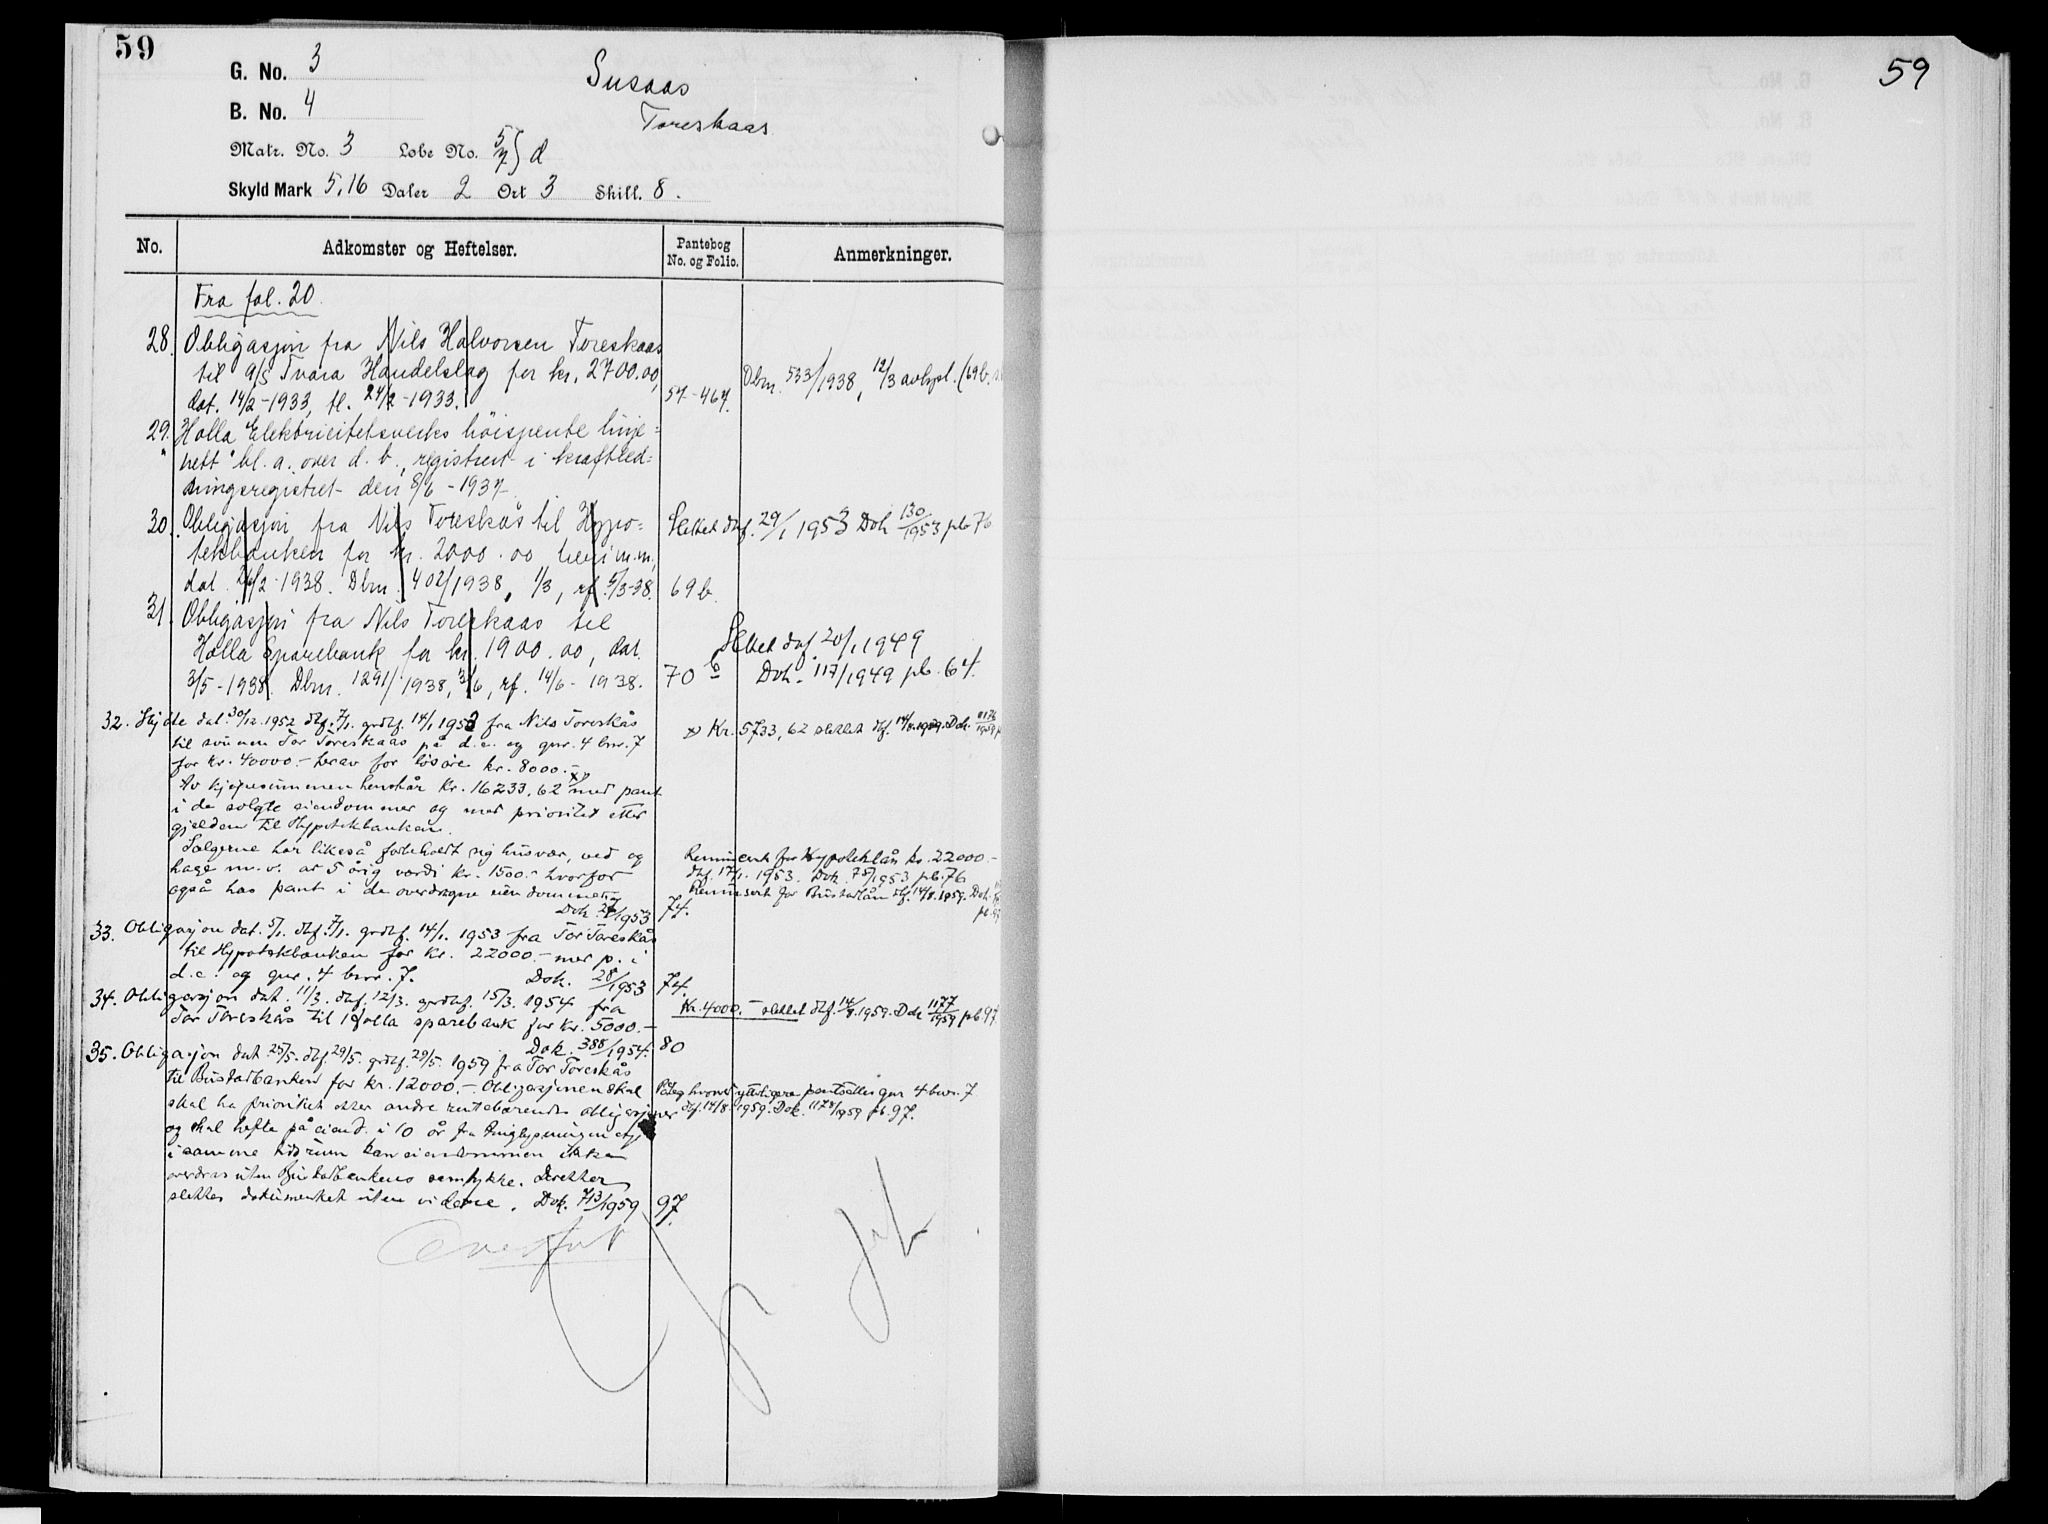 59
G. No. 3
Susaas
B. No. 4
Toreskaas
Matr. No. 3 Løbe No. 5/7} d
Skyld Mark 5,16 Daler 2 Ort 3 Skill. 8.
No. Adkomster og Heftelser. Pantebog No. og Folio. Anmerkninger.
Fra fol. 20.
28. Obligasjon fra Nils Halvorsen Toreskaas
til A/S Tvara Handelslag for kr. 2700.00,
dat. 14/2-1933, tl. 24/2-1933. 57-467.
Dbnr. 533/1938, 12/3 avlyst. (69b.
29. Holla Elektricitetsverks höispente linje=
nett bl. a. over d. b., registrert i kraftled=
ningsregistret den 8/6-1937
30. Obligasjon fra Nils Toreskås til Hypo=
tekbanken for kr. 2000.00 m.m.,
dat. 26/2-1938. Dbnr. 402/1938, 1/3, rf. 5/3-38. 69b.
Slettet dbf. 29/1 1953 Dok 130/1953 pb 76
31. Obligasjon fra Nils Toreskaas til
Holla Sparebank for kr. 1900.00, dat.
3/5-1938. Dbnr. 1291/1938, 3/6, rf. 14/6-1938. 70 b
Slettet dbf 20/1 1949
Dok. 117/1949 pb. 64.
32. Skjöte dat. 30/12.1952 dbf. 7/1. grdbf. 14/1 1953 fra Nils Toreskås
til sönnen Tor Toreskaas på d.e. og gnr. 4 bnr. 7
for kr. 40000.- herav for lösöre kr. 8000.-
Av kjöpesummen henstår kr. 16233,62 x) med pant
i de solgte eiendommer og med prioritet etter
gjelden til Hypotekbanken.
Selgerne har likeså forbeholdt sig husvær, ved og
hage m.v. av 5 årig verdi kr. 1500.- hvorfor
også has pant i de overdragne eiendommer.
Dok 27/1953 74.
x) Kr. 5733,62 slettet dbf. 14/8.1959. Dok. 1176/1959
for Hypoteklån kr. 22000.-
dbf. 17/1. 1953. Dok. 75/1953 pb. 76
for Bustadlån dbf. 14/8.1959. Dok.
33. Obligasjon dat. 5/1. dbf. 7/1. grdbf. 14/1. 1953 fra Tor Toreskås
til Hypotekbanken for kr. 22000.- med p. i
d.e. og gnr. 4 bnr. 7. Dok. 28/1953 74.
34. Obligasjon dat. 11/3. dbf. 12/3. grdbf. 15/3. 1954 fra
Tor Toreskås til Holla sparebank for kr. 5000.-
Dok. 388/1954. 80
Kr. 4000.- slettet dbf. 14/8.1959. Dok 1177/1959 pb 97.
35. Obligasjon dat. 25/5. dbf. 29/5. grdbf. 29/5. 1959 fra Tor Toreskås
til Bustadbanken for kr. 12000.- Obligasjonen skal
skal ha prioritet etter andre rentebærende obligasjoner
og skal hefte på eiend. i 10 år fra tinglysningen og
i samme tidsrum kan eiendommen ikke
overdras uten Bustadbankens samtykke. Deretter
slettes dokumentet uten videre. Dok. 713/1959 97.
Påteg hvoretter ytterligere pantsettes gnr 4 bnr. 7
dbf. 14/8. 1959. Dok. 1178/1959 pb. 97.
Overfört
59